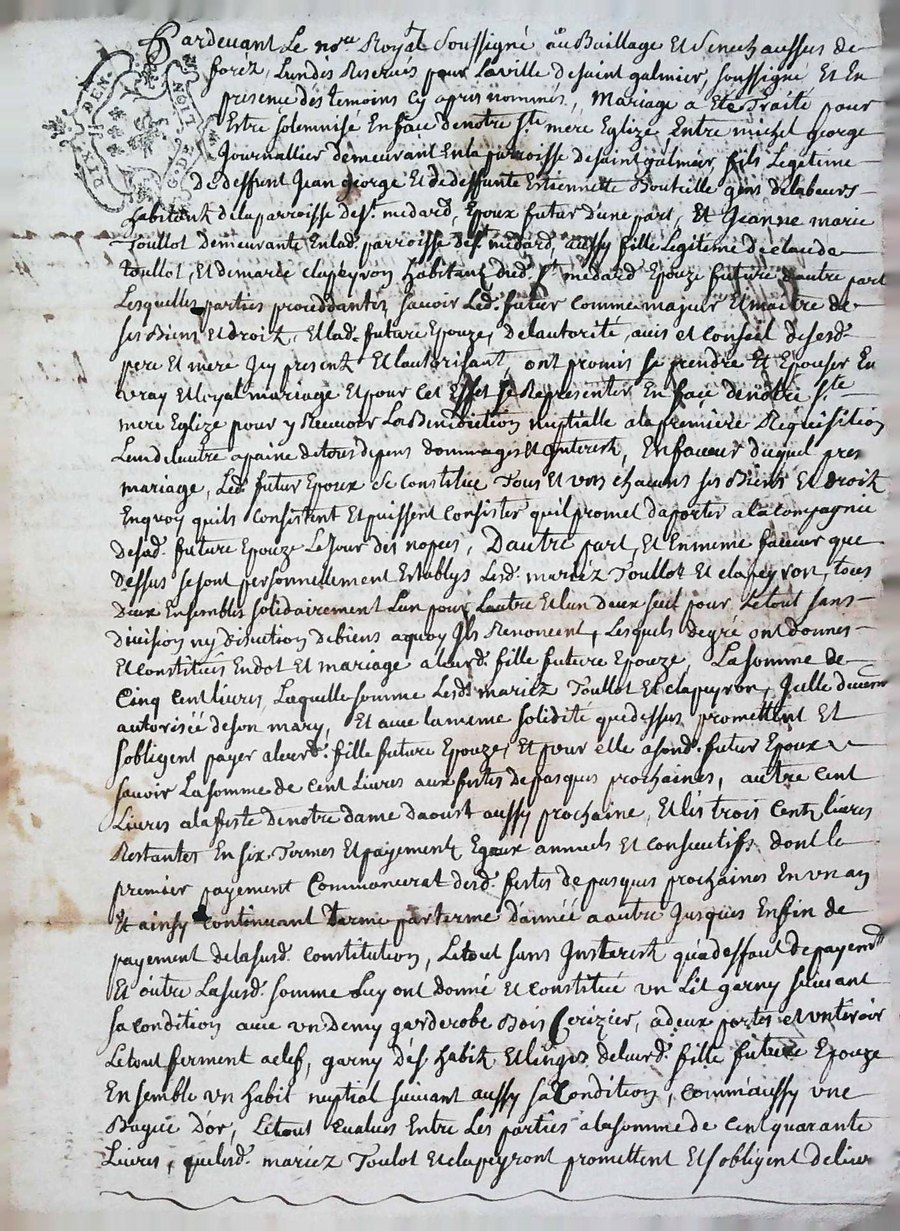 Pardevant Le no.re Royal Soussigné au Baillage Et Senechaussée de
forez, Lundis Reservés pour Laville desaint galmier, soussigné Et En
presence des temoins cy apres nommés, Mariage a Eté Traité pour
Estre solemnisé Enface denotre S.te mere Eglize Entre michel george
Journallier demeurant Enla parroisse desaint galmier fils Legitime
de deffunt Jean george Et dedeffunte Estiennette Bouteille gens delabeurs
habitant delaparroisse des.t medard, Epoux futur d'une part, Et Jeanne marie
Toullot demeurante Enlad. parroisse des.t medard, aussy fille Legitime declaude
toullot, Et demarie clapeyron habitantz dud. S.t medard Epouze future d'autre part
Lesquelles parties proceddantes sçavoir Led. futur comme majeur Et maitre de
ses Biens Et droitz, Et Lad. future Epouze, delautorité, avis et Conseil desesd.
pere Et mere Jcy present Et Lautorisant, ont promis se prendre Et Epouser En
vray Et Loyal mariage Et pour Cet Effet se Representer En face denotre S.te
mere Eglize pour y Recevoir La Benediction nuptialle ala premiere Requisition
Lundelautre apaine detous depens dommages Et Interest, Enfaveur duquel pres
mariage, Led. futur Epoux se Constitue Tous Et uns chacuns ses Biens Et droitz
Enquoy quils Consistent Et puissent Consister quil promet daporter alaCompagnie
desad. future Epouze Lejour des nopces, Dautre part, Et Enmeme faveur que
dessus sesont personnellement Establys Lesd. mariéz Toullot Et clapeyron, tous
deux Ensembles solidairement Lun pour Lautre Et Lun deux seul pour Letout sans
division ny discution debiens aquoy Jls Renoncent, Lesquels degré ont donnés
Et Constitués Endot Et mariage aleurd. fille future Epouze, La somme de
Cinq Cent livres, Laquelle somme Lesd. mariéz Toullot Et clapeyron, Jcelle
autorisée deson mary, Et avec lameme solidité quedessus promettent Et
sobligent payer aleurd. fille future Epouze, Et pour elle asond. futur Epoux
sçavoir La somme de Cent Livres aux festes depasques prochaines, autre Cent
Livres alafeste denotre dame daoust aussy prochaine, Et les trois Centz livres
Restantes En six Termes Et payementz Egaux annuels Et consecutifs dont le
premier payement Commancerat desd. festes de pasques prochaines En un an
Et ainsy Continuant terme parterme d'année a autre Jusques Enfin de
payement delasusd. Constitution, Letout sans Jnsterest qu'adeffaut depayem.t
Et outre Lasusd. somme Luy ont donné Et Constitué un Lit garny suivant
sa condition avec un demy garderobe Bois Cerizier, adeux portes et un tiroir
Letout ferment aclef, garny dés habitz Et linges deleurd. fille future Epouze
Ensemble un habit nuptial suivant aussy sa Condition, Comm'aussy une
Bague d'or, Letout Evalués Entre Les parties alasomme de Cent quarante
Livres, que Lesd. mariéz Toulot Et clapeyront promettent Et sobligent delivrer